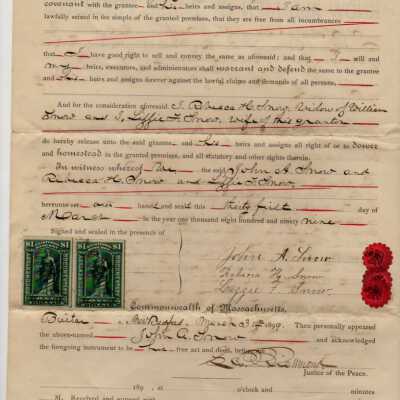 covenant with the grantee and his heirs and assigns, that I am
lawfully seized in fee simple of the granted premises, that they are free from all incumbrances
that I have good right to sell and convey the same as aforesaid; and that I will and
my heirs, executors, and administrators shall warrant and defend the same to the grantee
and his heirs and assigns forever against the lawful claims and demands of all persons,
And for the consideration aforesaid I, Rebecca H. Snow, Widow of William
Snow and I, Lizzie F. Snow, wife of this grantor
do hereby release unto the said grantee and his heirs and assigns all right of or to dower
and homestead in the granted premises, and all statutory and other rights therein.
In witness whereof we the said John A. Snow and
Rebecca H. Snow and Lizzie F. Snow
hereunto set our hands and seals this thirty first day of
March in the year one thousand eight hundred and ninety nine
Signed and sealed in the presence of
John A. Snow
H. Snow
Lizzie F. Snow
$1 $1 $1 $1
Commonwealth of Massachusetts.
ss. March 31st 1899. Then personally appeared
the above-named John A. Snow and acknowledged
the foregoing instrument to be his free act and deed, before me
Justice of the Peace.
189 , at o'clock and minutes
M. Received and entered with